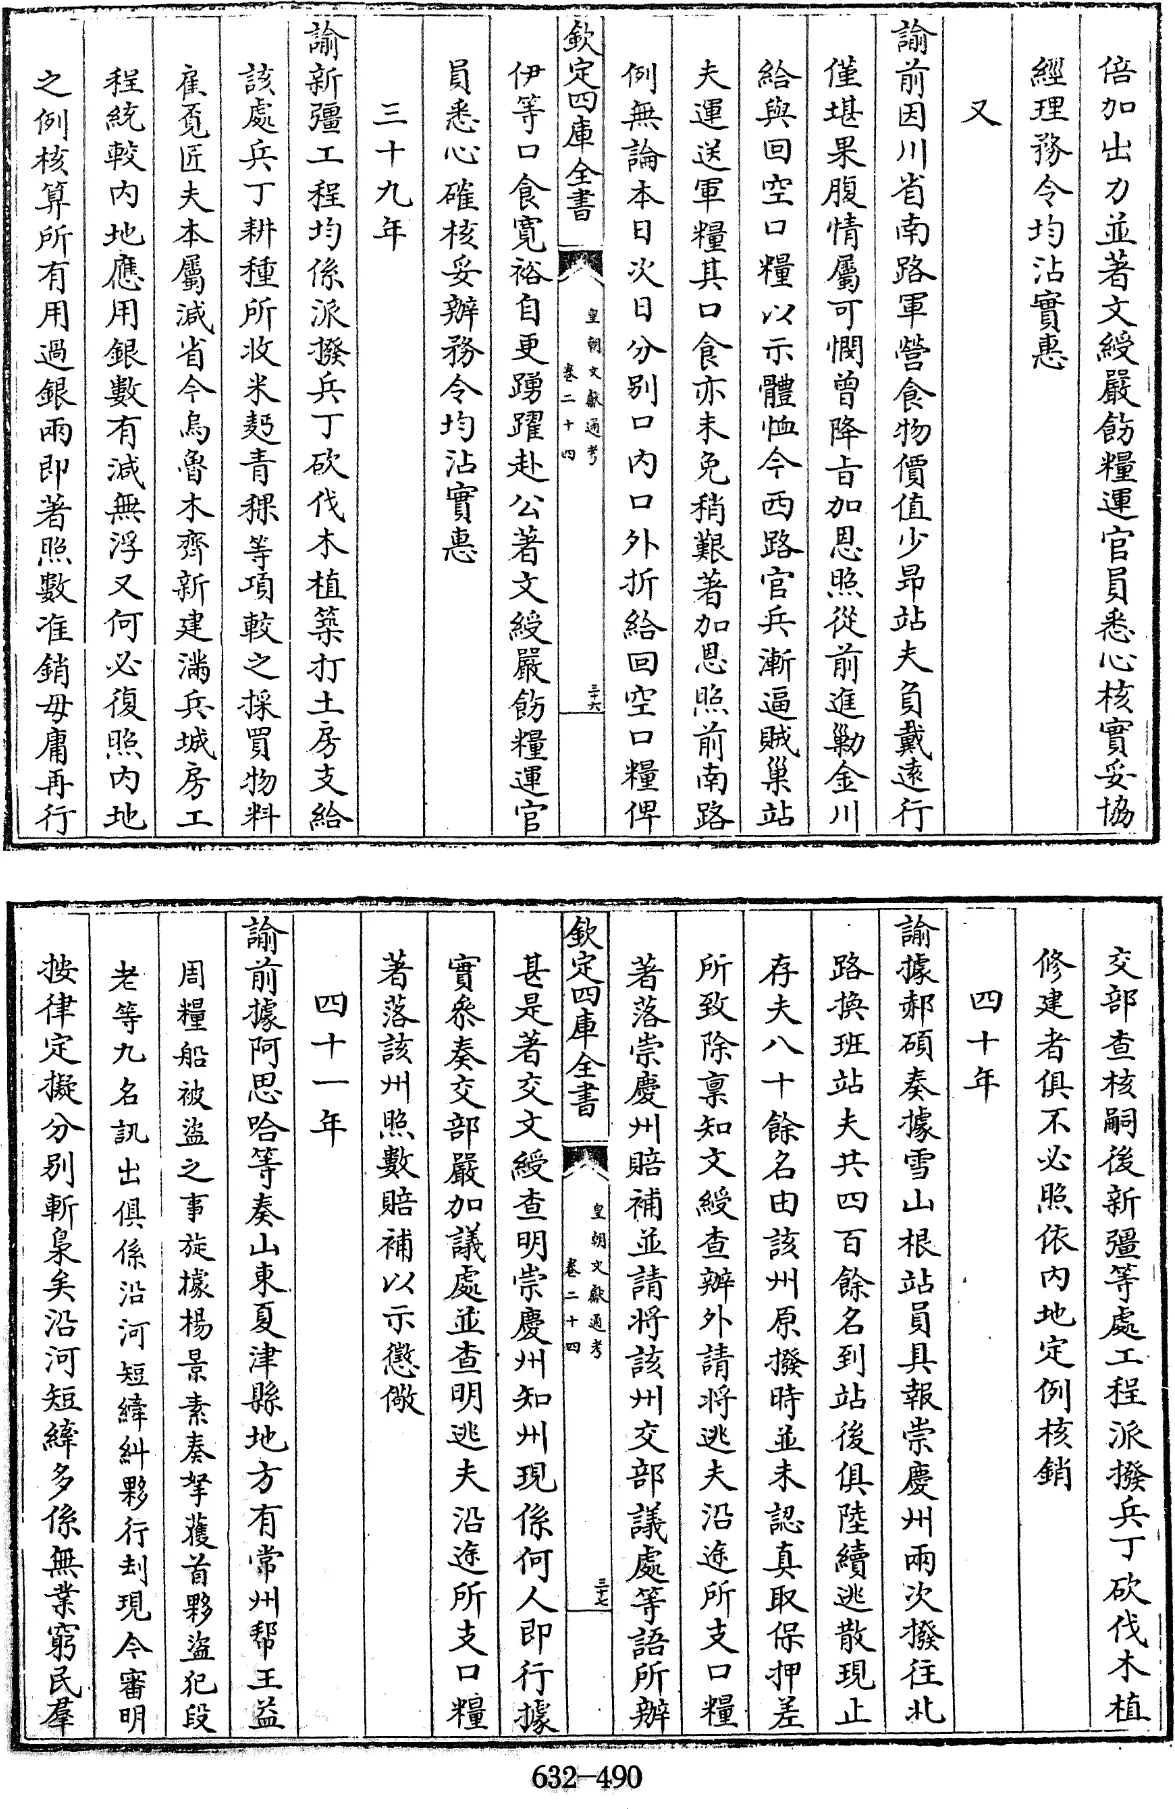 倍加出力並著文綬嚴飭糧運官員悉心核實妥協
經理務令均沾實惠
又
諭前因川省南路軍營食物價值少昂站夫負戴遠行
僅堪果腹情屬可憫曾降旨加恩照從前進勦金川
給與回空口糧以示體恤今西路官兵漸逼賊巢站
夫運送軍糧其口食亦未免稍艱著加恩照前南路
例無論本日次日分別口內口外折給回空口糧俾
欽定四庫全書
皇朝文獻通考
卷二十四
三十六
伊等口食寬裕自更踴躍赴公著文綬嚴飭糧運官
員悉心確核妥辦務令均沾實惠
三十九年
諭新疆工程均係派撥兵丁砍伐木植築打土房支給
該處兵丁耕種所收米麪青稞等項較之採買物料
雇覔匠夫本屬減省今烏魯木齊新建滿兵城房工
程統較內地應用銀數有減無浮又何必復照內地
之例核算所有用過銀兩即著照數准銷毋庸再行
交部查核嗣後新疆等處工程派撥兵丁砍伐木植
修建者俱不必照依內地定例核銷
四十年
諭據郝碩奏據雪山根站員具報崇慶州兩次撥往北
路換班站夫共四百餘名到站後俱陸續逃散現止
存夫八十餘名由該州原撥時並未認真取保押差
所致除稟知文綬查辦外請將逃夫沿途所支口糧
著落崇慶州賠補並請將該州交部議處等語所辦
欽定四庫全書
皇朝文獻通考
卷二十四
三十七
甚是著交文綬查明崇慶州知州現係何人即行據
實叅奏交部嚴加議處並查明逃夫沿途所支口糧
著落該州照數賠補以示懲儆
四十一年
諭前據阿思哈等奏山東夏津縣地方有常州帮王益
周糧船被盜之事旋據楊景素奏拏獲首夥盜犯段
老等九名訊出俱係沿河短縴糾夥行刦現今審明
按律定擬分別斬梟矣沿河短縴多係無業窮民羣
632-490